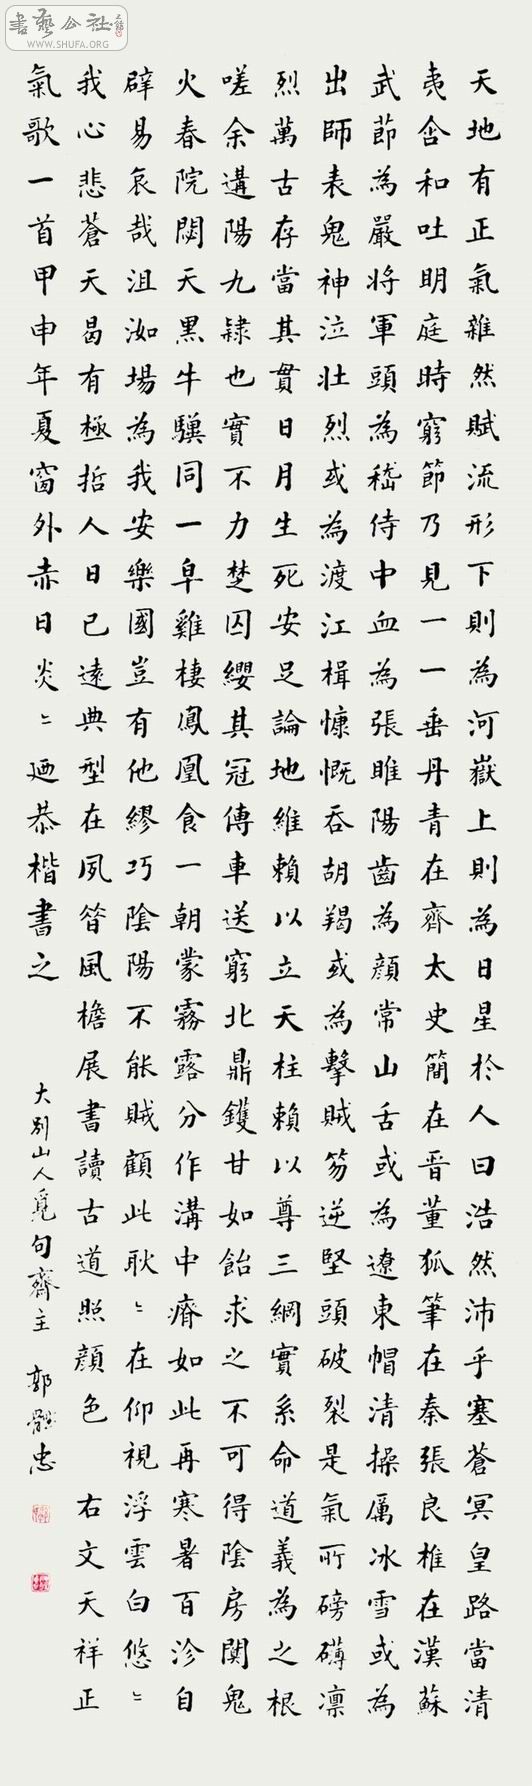 書藝公社
WWW.SHUFA.ORG
天地有正氣雜然賦流形下則為河嶽上則為日星於人曰浩然沛乎塞蒼冥皇路當清
夷含和吐明庭時窮節乃見一一垂丹青在齊太史簡在晉董狐筆在秦張良椎在漢蘇
武節為嚴將軍頭為嵇侍中血為張睢陽齒為顏常山舌或為遼東帽清操厲冰雪或為
出師表鬼神泣壯烈或為渡江楫慷慨吞胡羯或為擊賊笏逆竪頭破裂是氣所磅礴凛
烈萬古存當其貫日月生死安足論地維賴以立天柱賴以尊三綱實系命道義為之根
嗟余遘陽九隸也實不力楚囚纓其冠傳車送窮北鼎鑊甘如飴求之不可得陰房闃鬼
火春院閟天黑牛驥同一皁雞棲鳳凰食一朝蒙霧露分作溝中瘠如此再寒暑百沴自
辟易哀哉沮洳場為我安樂國豈有他繆巧陰陽不能賊顧此耿〻在仰視浮雲白悠〻
我心悲蒼天曷有極哲人日已遠典型在夙昔風檐展書讀古道照顏色 右文天祥正
氣歌一首甲申年夏窗外赤日炎〻廼恭楷書之
大別山人覓句齋主 郭忠